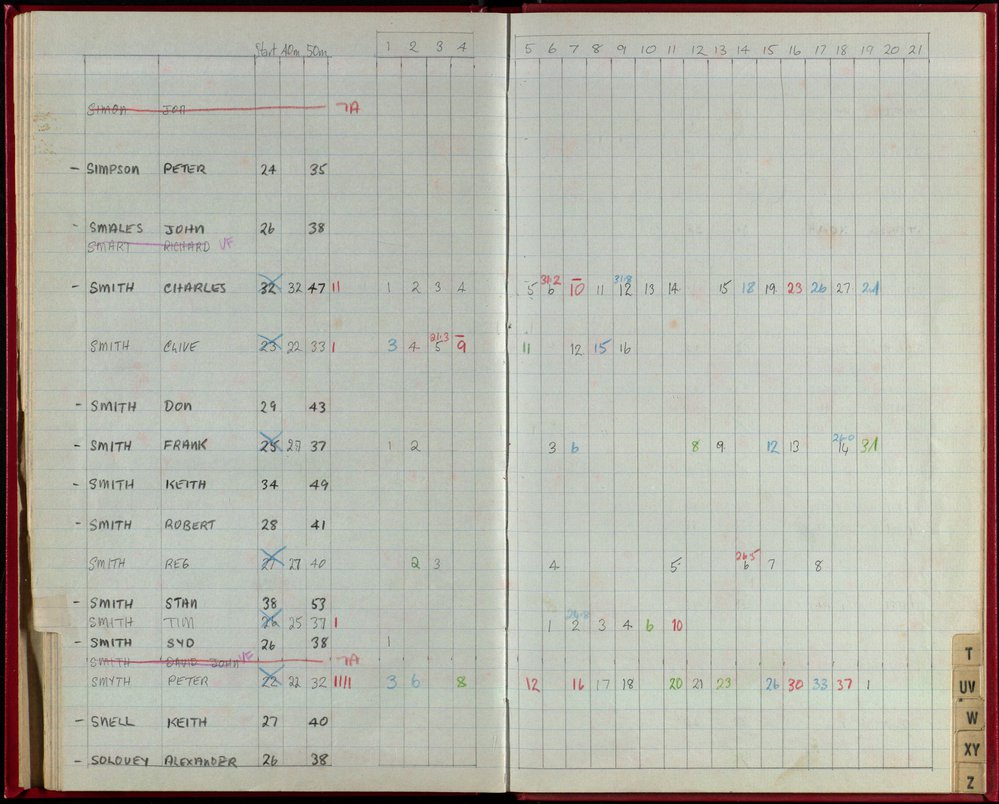 Start 40m 50m 1 2 3 4 5 6 7 8 9 10 11 12 13 14 15 16 17 18 19 20 21
SIMON JON 7A
- SIMPSON PETER 24 35
- SMALES JOHN 26 38
SMART RICHARD VF
31.2 31.8
- SMITH CHARLES 32 32 47 11 1 2 3 4 5 6 10 11 12 13 14 15 18 19 23 26 27 21
21.3
SMITH CLIVE 23 22 33 1 3 4 5 9 11 12 15 16
- SMITH DON 29 43
26.0
- SMITH FRANK 25 27 37 1 2 3 6 8 9 12 13 14 31
- SMITH KEITH 34 49
- SMITH ROBERT 28 41
26.5
SMITH REG 27 27 40 2 3 4 5 6 7 8
- SMITH STAN 38 53
SMITH TIM 26 25 37 1 1 2 3 4 6 10
- SMITH SYD 26 38 1
SMITH DAVID JOHN VF 7A
SMYTH PETER 22 22 32 1111 3 6 8 12 16 17 18 20 21 23 26 30 33 37 1
- SNELL KEITH 27 40
- SOLOVEY ALEXANDER 26 38
T
UV
W
XY
Z